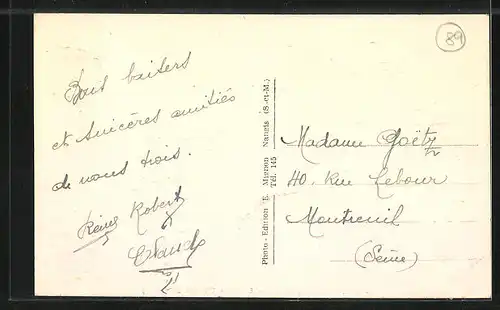 Bons baisers
et sincères amitiés
de nous trois.
Reine Robert
Claude
Photo - Edition E. Mignon Nangis (S.-et-M.)
Tél. 145
Madame Goëtz
40. Rue Lebour
Montreuil
(Seine)
89